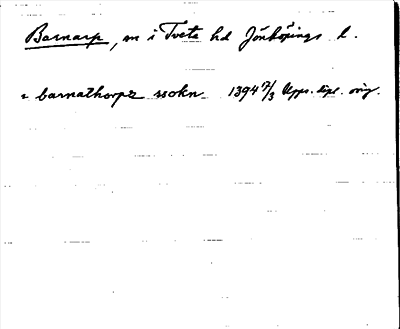 Barnarp, sn i Tveta hd Jönköpings l.
i barnathorpz sokn 1394 7/3 Upps. dipl. orig.